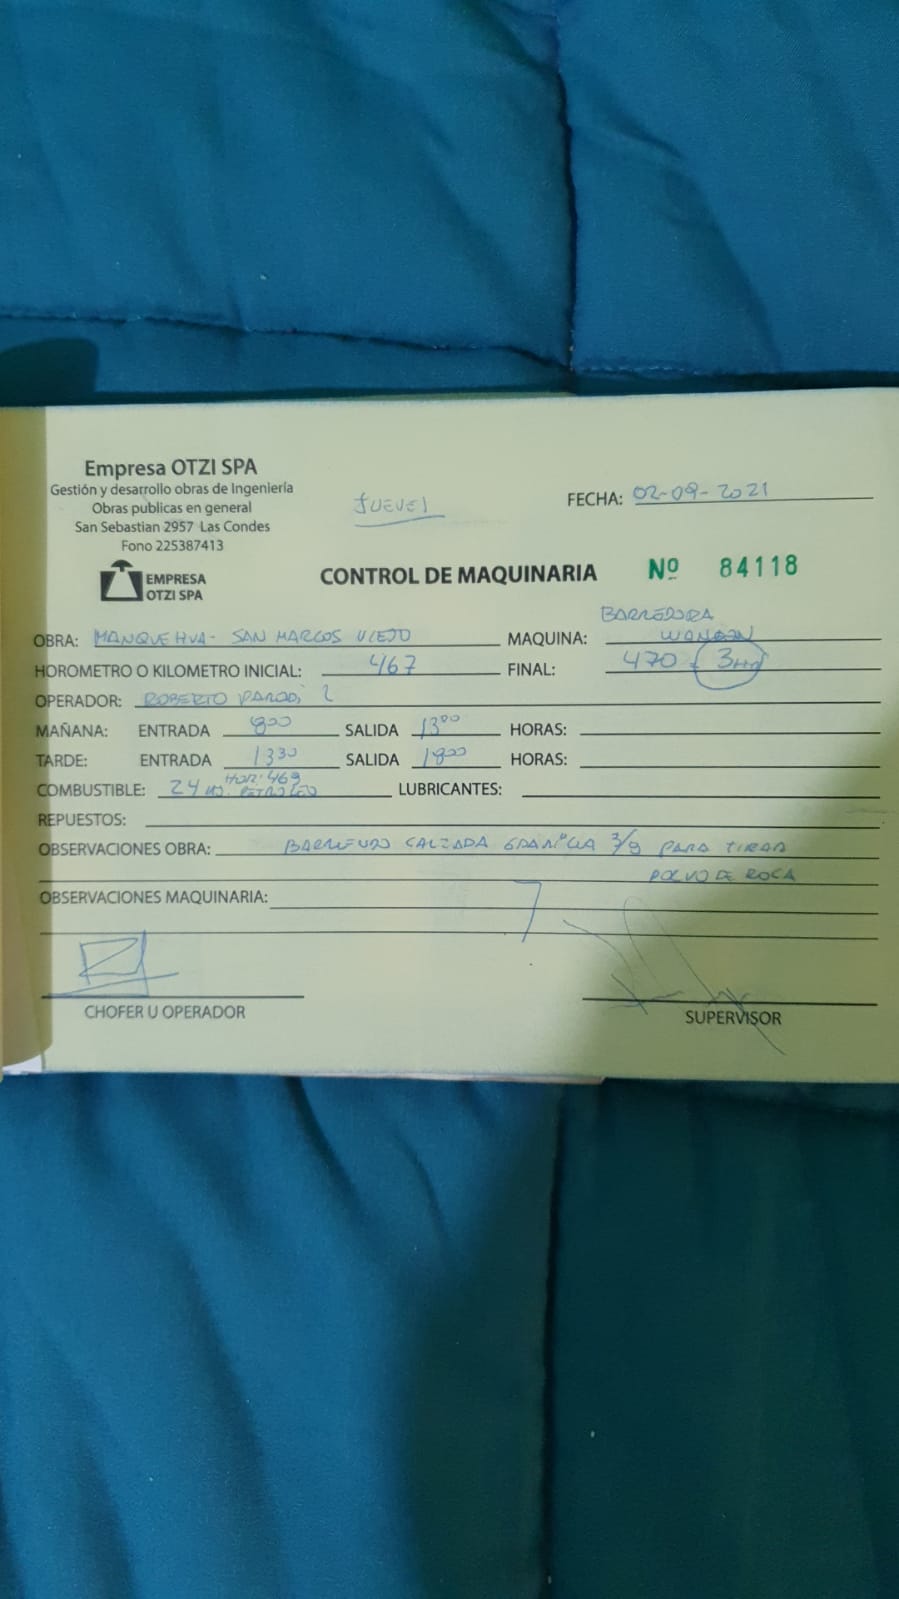 Empresa OTZI SPA
Gestión y desarrollo obras de Ingeniería
Obras publicas en general
San Sebastian 2957 Las Condes
Fono 225387413
EMPRESA
OTZI SPA
JUEVES
FECHA: 02-09-2021
CONTROL DE MAQUINARIA Nº 84118
BARREDORA
OBRA: MANQUEHUA - SAN MARCOS VIEJO MAQUINA:
HOROMETRO O KILOMETRO INICIAL: 467 FINAL: 470 3
OPERADOR: ROBERTO
MAÑANA: ENTRADA 800 SALIDA 1300 HORAS:
TARDE: ENTRADA 1330 SALIDA 1800 HORAS:
HOR. 469
COMBUSTIBLE: 24 PETROLEO LUBRICANTES:
REPUESTOS:
OBSERVACIONES OBRA: BARRIENDO CALZADA GRANILLA 3/8 PARA TIRAR
POLVO DE ROCA
OBSERVACIONES MAQUINARIA:
CHOFER U OPERADOR
SUPERVISOR